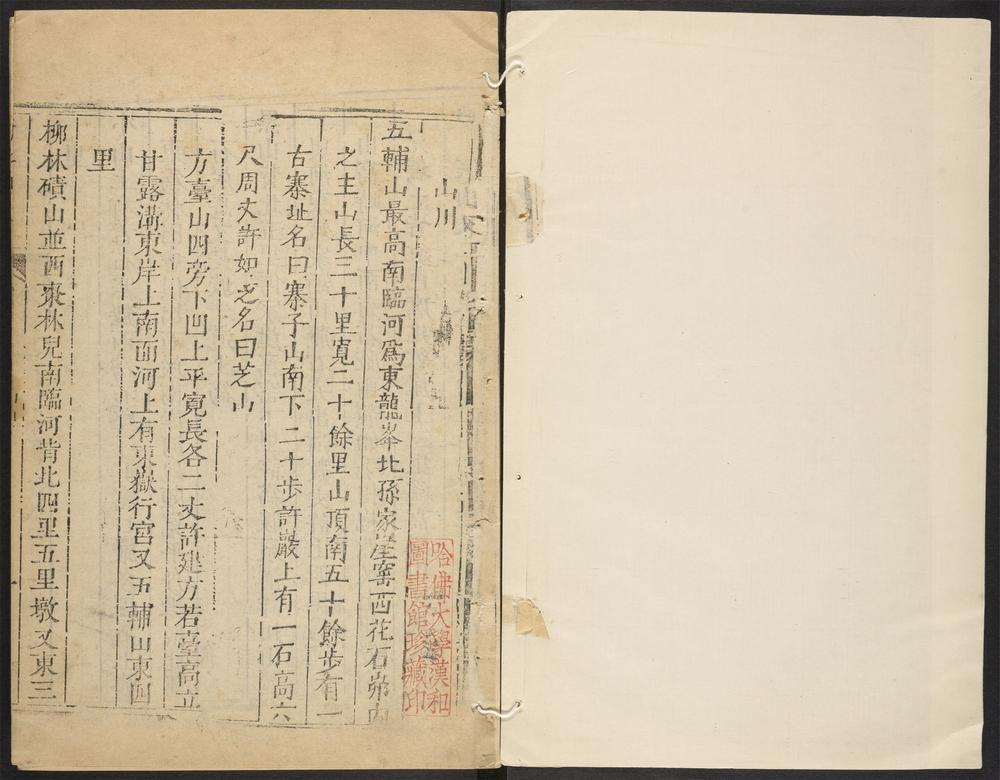 山川
五輔山最高南臨河爲東龍峯北孫家窰西花石峁山
之主山長三十里寬二十餘里山頂南五十餘步有一
古寨址名曰寨子山南下二十步許巖上有一石高六
尺周丈許如芝名曰芝山
方臺山四旁下凹上平寬長各二丈許建方若臺高立
甘露溝東岸上南面河上有東嶽行宮又五輔山東四
里
柳林磧山並西棗林兒南臨河背北四里五里墩又東三
哈佛大學漢和
圖書館珍藏印